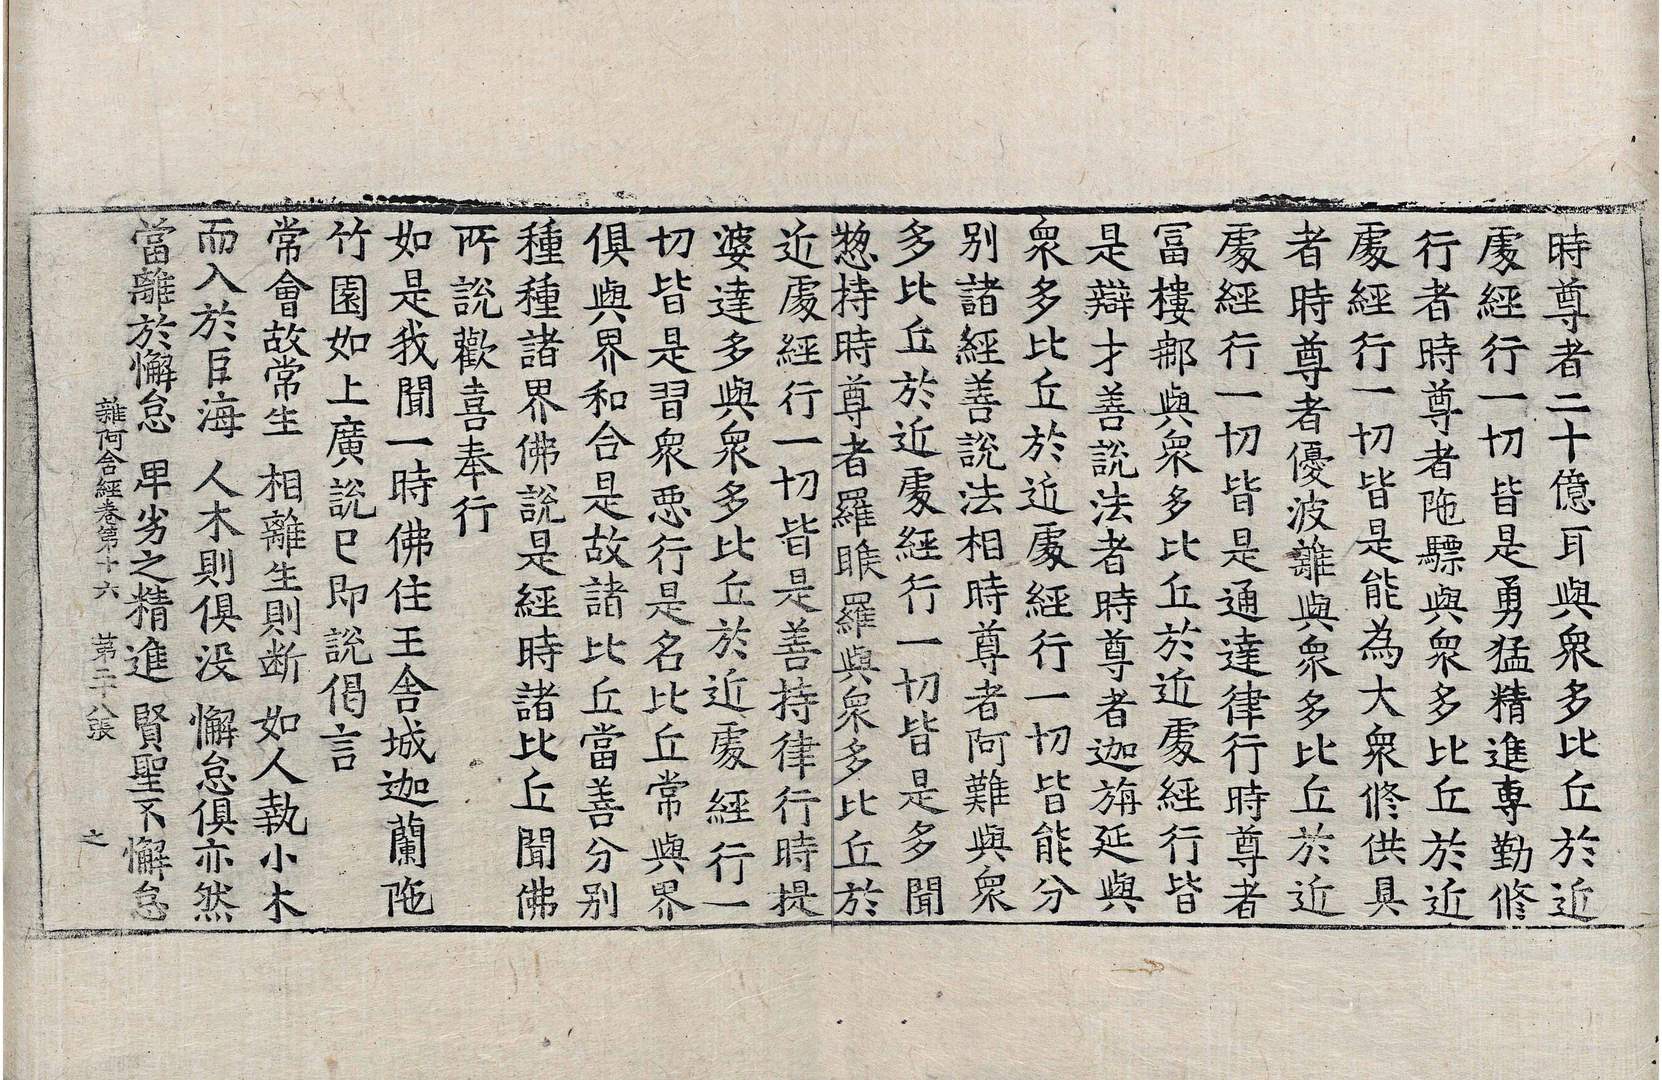 時尊者二十億耳與衆多比丘於近
處經行一切皆是勇猛精進專勤修
行者時尊者陁驃與衆多比丘於近
處經行一切皆是能為大衆修供具
者時尊者優波離與衆多比丘於近
處經行一切皆是通達律行時尊者
冨樓那與衆多比丘於近處經行皆
是辯才善說法者時尊者迦旃延與
衆多比丘於近處經行一切皆能分
別諸經善說法相時尊者阿難與衆
多比丘於近處經行一切皆是多聞
揔持時尊者羅睺羅與衆多比丘於
近處經行一切皆是善持律行時提
婆達多與衆多比丘於近處經行一
切皆是習衆惡行是名比丘常與界
俱與界和合是故諸比丘當善分別
種種諸界佛說是經時諸比丘聞佛
所說歡喜奉行
如是我聞一時佛住王舍城迦蘭陁
竹園如上廣說已即說偈言
常會故常生　相離生則断　如人執小木
而入於巨海　人木則俱没　懈怠俱亦然
當離於懈怠　卑劣之精進　賢聖不懈怠
雜阿含經卷第十六　第二十八張　之